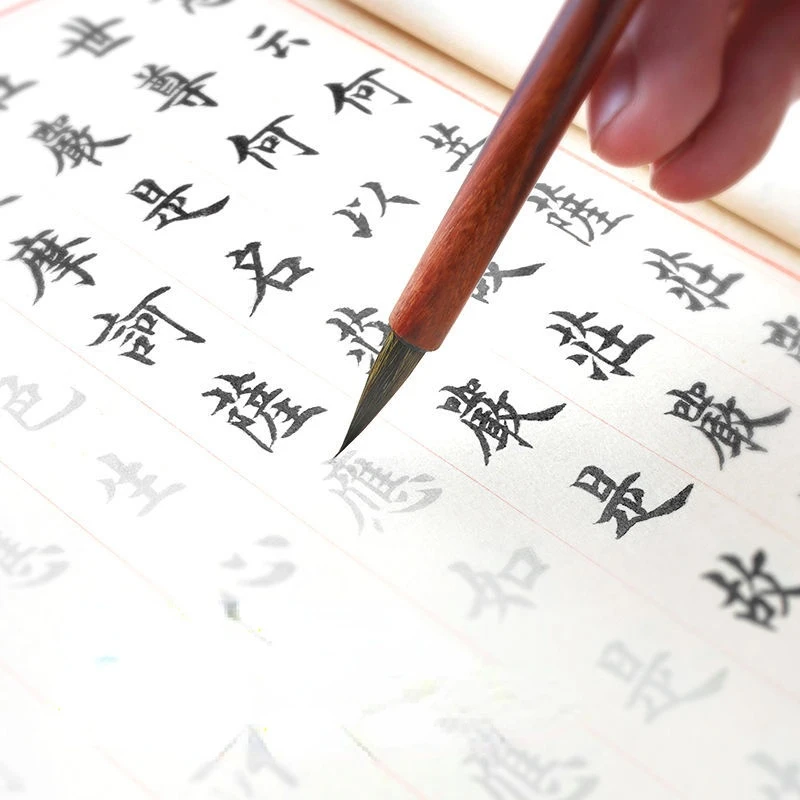 云何菩薩莊嚴
世尊何以故莊嚴
莊嚴是名莊嚴是故
摩訶薩應如是
色生心應